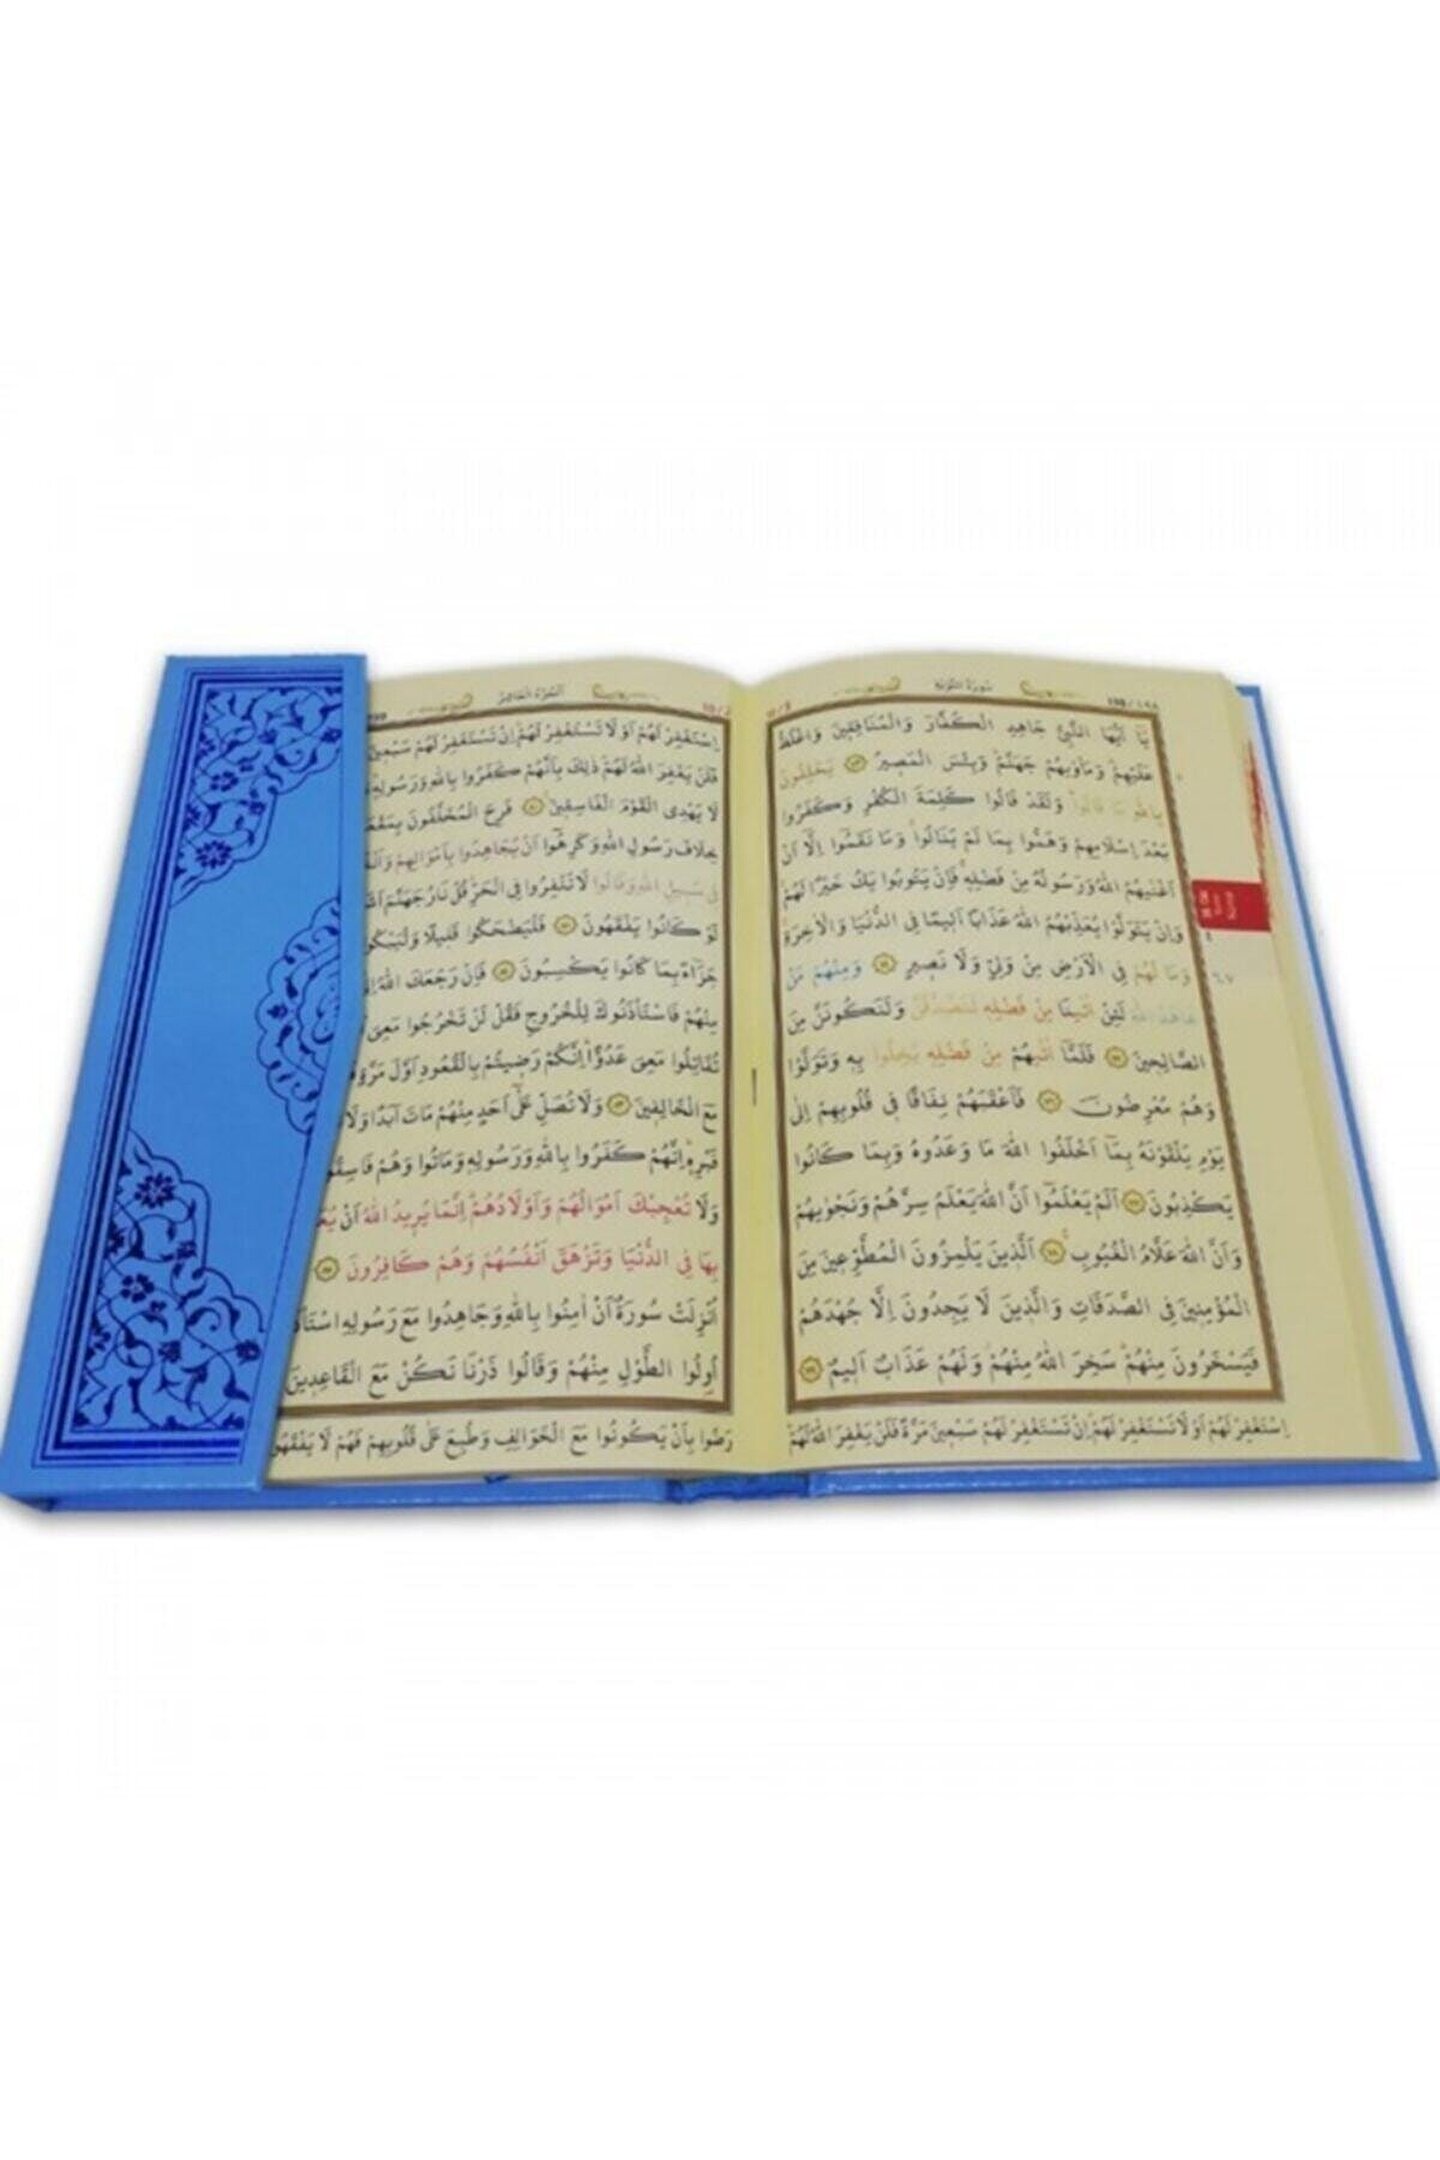 سورة التوبة
١٩٨/198
يَا اَيُّهَا النَّبِيُّ جَاهِدِ الْكُفَّارَ وَالْمُنَافِقِينَ وَاغْلُظْ
عَلَيْهِمْ وَمَأْوٰيهُمْ جَهَنَّمُ وَبِئْسَ الْمَصِيرُ ﴿٧٣﴾ يَحْلِفُونَ
بِاللّٰهِ مَا قَالُوا وَلَقَدْ قَالُوا كَلِمَةَ الْكُفْرِ وَكَفَرُوا
بَعْدَ اِسْلَامِهِمْ وَهَمُّوا بِمَا لَمْ يَنَالُوا وَمَا نَقَمُوا اِلَّا اَنْ
اَغْنٰيهُمُ اللّٰهُ وَرَسُولُهُ مِنْ فَضْلِهِ فَاِنْ يَتُوبُوا يَكُ خَيْرًا لَهُمْ
وَاِنْ يَتَوَلَّوْا يُعَذِّبْهُمُ اللّٰهُ عَذَابًا اَلِيمًا فِى الدُّنْيَا وَالْاٰخِرَةِ
وَمَا لَهُمْ فِى الْاَرْضِ مِنْ وَلِىٍّ وَلَا نَصِيرٍ ﴿٧٤﴾ وَمِنْهُمْ مَنْ
عَاهَدَ اللّٰهَ لَئِنْ اٰتٰينَا مِنْ فَضْلِهِ لَنَصَّدَّقَنَّ وَلَنَكُونَنَّ مِنَ
الصَّالِحِينَ ﴿٧٥﴾ فَلَمَّا اٰتٰيهُمْ مِنْ فَضْلِهِ بَخِلُوا بِهِ وَتَوَلَّوْا
وَهُمْ مُعْرِضُونَ ﴿٧٦﴾ فَاَعْقَبَهُمْ نِفَاقًا فِى قُلُوبِهِمْ اِلٰى
يَوْمِ يَلْقَوْنَهُ بِمَا اَخْلَفُوا اللّٰهَ مَا وَعَدُوهُ وَبِمَا كَانُوا
يَكْذِبُونَ ﴿٧٧﴾ اَلَمْ يَعْلَمُوا اَنَّ اللّٰهَ يَعْلَمُ سِرَّهُمْ وَنَجْوٰيهُمْ
وَاَنَّ اللّٰهَ عَلَّامُ الْغُيُوبِ ﴿٧٨﴾ اَلَّذِينَ يَلْمِزُونَ الْمُطَّوِّعِينَ مِنَ
الْمُؤْمِنِينَ فِى الصَّدَقَاتِ وَالَّذِينَ لَا يَجِدُونَ اِلَّا جُهْدَهُمْ
فَيَسْخَرُونَ مِنْهُمْ سَخِرَ اللّٰهُ مِنْهُمْ وَلَهُمْ عَذَابٌ اَلِيمٌ ﴿٧٩﴾
اِسْتَغْفِرْ لَهُمْ اَوْ لَا تَسْتَغْفِرْ لَهُمْ اِنْ تَسْتَغْفِرْ لَهُمْ سَبْعِينَ مَرَّةً فَلَنْ يَغْفِرَ اللّٰهُ لَهُمْ
الجزء العاشر
اِسْتَغْفِرْ لَهُمْ اَوْ لَا تَسْتَغْفِرْ لَهُمْ اِنْ تَسْتَغْفِرْ لَهُمْ سَبْعِينَ
فَلَنْ يَغْفِرَ اللّٰهُ لَهُمْ ذٰلِكَ بِاَنَّهُمْ كَفَرُوا بِاللّٰهِ وَرَسُولِهِ
لَا يَهْدِى الْقَوْمَ الْفَاسِقِينَ ﴿٨٠﴾ فَرِحَ الْمُخَلَّفُونَ
خِلَافَ رَسُولِ اللّٰهِ وَكَرِهُوا اَنْ يُجَاهِدُوا بِاَمْوَالِهِمْ
فِى سَبِيلِ اللّٰهِ وَقَالُوا لَا تَنْفِرُوا فِى الْحَرِّ قُلْ نَارُ جَهَنَّمَ
لَوْ كَانُوا يَفْقَهُونَ ﴿٨١﴾ فَلْيَضْحَكُوا قَلِيلًا وَلْيَبْكُوا
جَزَاءً بِمَا كَانُوا يَكْسِبُونَ ﴿٨٢﴾ فَاِنْ رَجَعَكَ اللّٰهُ
مِنْهُمْ فَاسْتَأْذَنُوكَ لِلْخُرُوجِ فَقُلْ لَنْ تَخْرُجُوا مَعِىَ
تُقَاتِلُوا مَعِىَ عَدُوًّا اِنَّكُمْ رَضِيتُمْ بِالْقُعُودِ اَوَّلَ
مَعَ الْخَالِفِينَ ﴿٨٣﴾ وَلَا تُصَلِّ عَلٰى اَحَدٍ مِنْهُمْ مَاتَ اَبَدًا وَلَا
قَبْرِهِ اِنَّهُمْ كَفَرُوا بِاللّٰهِ وَرَسُولِهِ وَمَاتُوا وَهُمْ
وَلَا تُعْجِبْكَ اَمْوَالُهُمْ وَاَوْلَادُهُمْ اِنَّمَا يُرِيدُ اللّٰهُ اَنْ
بِهَا فِى الدُّنْيَا وَتَزْهَقَ اَنْفُسُهُمْ وَهُمْ كَافِرُونَ ﴿٨٥﴾
اُنْزِلَتْ سُورَةٌ اَنْ اٰمِنُوا بِاللّٰهِ وَجَاهِدُوا مَعَ رَسُولِهِ
اُولُوا الطَّوْلِ مِنْهُمْ وَقَالُوا ذَرْنَا نَكُنْ مَعَ الْقَاعِدِينَ
رَضُوا بِاَنْ يَكُونُوا مَعَ الْخَوَالِفِ وَطُبِعَ عَلٰى قُلُوبِهِمْ فَهُمْ لَا